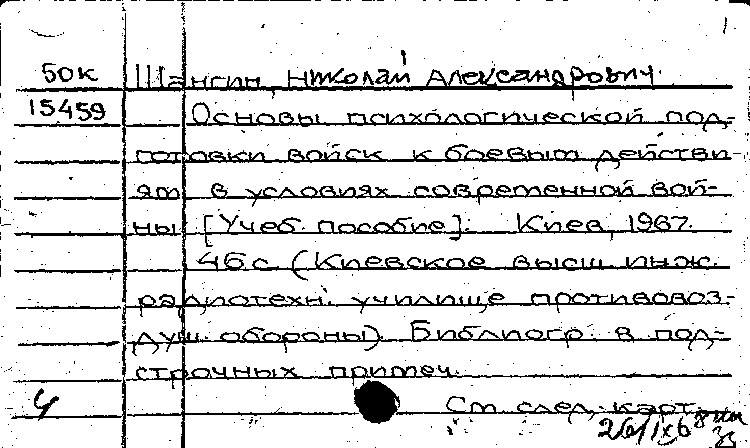 1
50к Шангин, Николай Александрович.
15459 Основы психологической под-
готовки войск к боевым действи-
ям в условиях современной вой-
ны [Учеб. пособие]. Киев, 1967.
46 с. (Киевское высш. инж.
радиотехн. училище противовоз-
душ. обороны). Библиогр. в под-
строчных примеч.
См. след. карт.